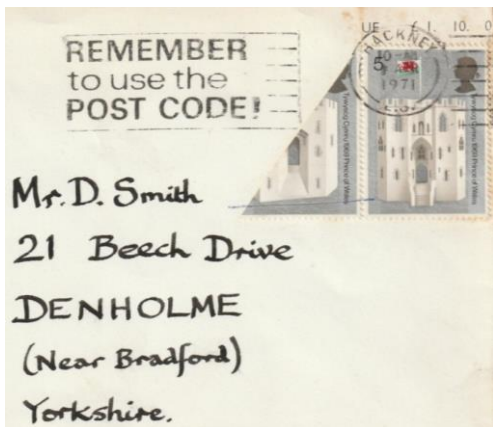 REMEMBER
to use the
POST CODE!
UE £1. 10. 0
HACKNEY
10-AM
1971
5
Mr. D. Smith
21 Beech Drive
DENHOLME
(Near Bradford)
Yorkshire.